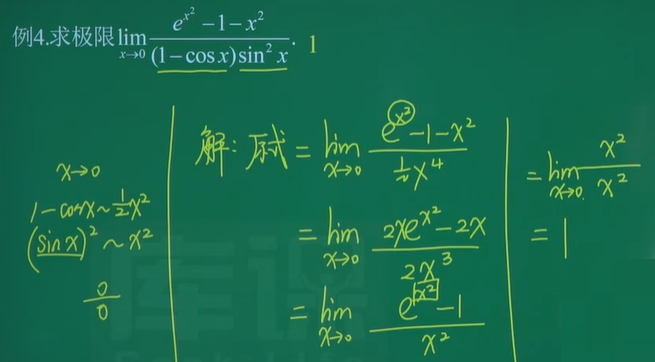 例4.求极限 lim x→0 (e^{x²} -1-x²)/((1-cos x)sin² x). 1
x→0
1-cosx~½x²
(sinx)²~x²
0/0
解: 原式 = lim x→0 (e^{x²}-1-x²)/(½x⁴)
= lim x→0 (2xe^{x²}-2x)/(2x³)
= lim x→0 (e^{x²}-1)/x²
= lim x→0 x²/x²
= 1
库课